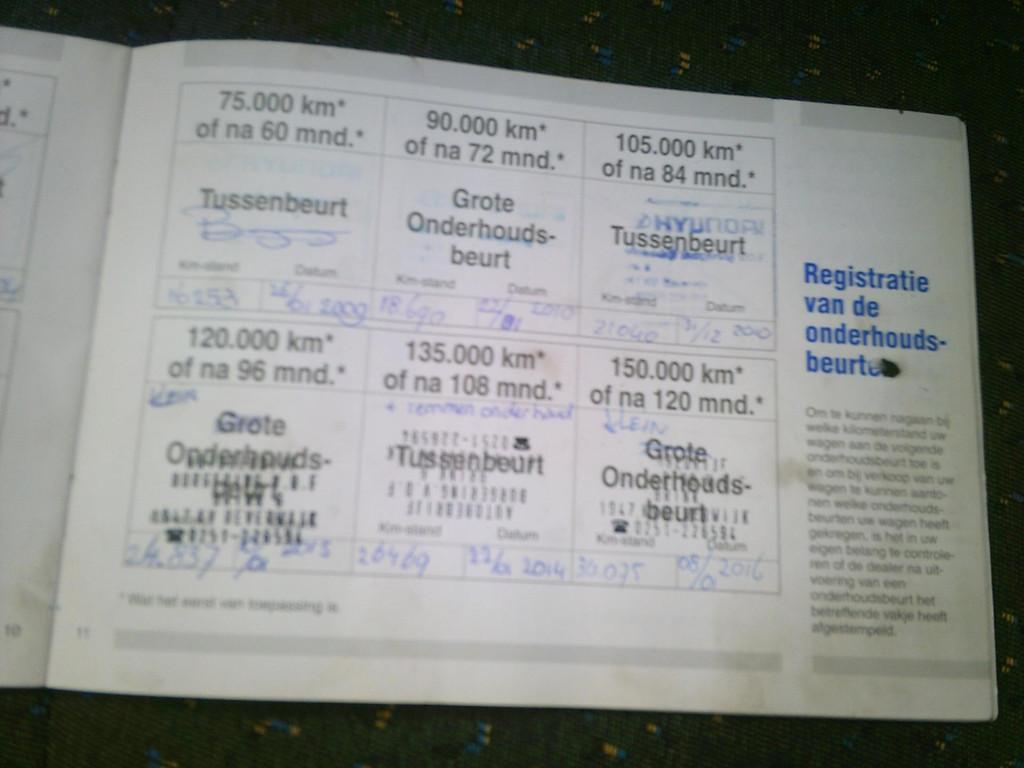 75.000 km*
of na 60 mnd.*
Tussenbeurt
Km-stand Datum
16253 2009
90.000 km*
of na 72 mnd.*
Grote
Onderhouds-
beurt
Km-stand Datum
18.690 2010
105.000 km*
of na 84 mnd.*
HYUNDAI
Tussenbeurt
Km-stand Datum
21040 31/12 2010
120.000 km*
of na 96 mnd.*
KLEIN
Grote
Onderhouds-
BEVERWIJK
☎0251-226594
24.837 2013
135.000 km*
of na 108 mnd.*
+ remmen onderhoud
☎ 0251-226594
Tussenbeurt
BORGERING V.O.F
AUTOBEDRIJF
Km-stand Datum
26469 22/01 2014
150.000 km*
of na 120 mnd.*
KLEIN
Grote
Onderhouds-
beurt
1947
☎0251-226594
Km-stand Datum
30.075 2016
* Wat het eerst van toepassing is
10
11
Registratie
van de
onderhouds-
Om te kunnen nagaan bij
welke kilometerstand uw
wagen aan de volgende
onderhoudsbeurt toe is
en om bij verkoop van uw
wagen te kunnen aanto-
nen welke onderhouds-
beurten uw wagen heeft
gekregen, is het in uw
eigen belang te controle-
ren of de dealer na uit-
voering van een
onderhoudsbeurt het
betreffende vakje heeft
afgestempeld.